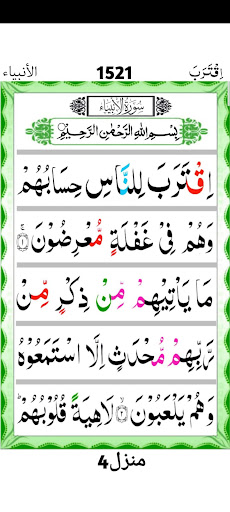 الأنبياء 1521 اِقْتَرَبَ
سُوْرَةُ الْاَنْبِيَآء
بِسْمِ اللّٰهِ الرَّحْمٰنِ الرَّحِيْمِ
اِقْتَرَبَ لِلنَّاسِ حِسَابُهُمْ
وَهُمْ فِيْ غَفْلَةٍ مُّعْرِضُوْنَ ۝١
مَا يَاْتِيْهِمْ مِّنْ ذِكْرٍ مِّنْ
رَّبِّهِمْ مُّحْدَثٍ اِلَّا اسْتَمَعُوْهُ
وَهُمْ يَلْعَبُوْنَ ۝٢ لَاهِيَةً قُلُوْبُهُمْ ؕ
منزل4